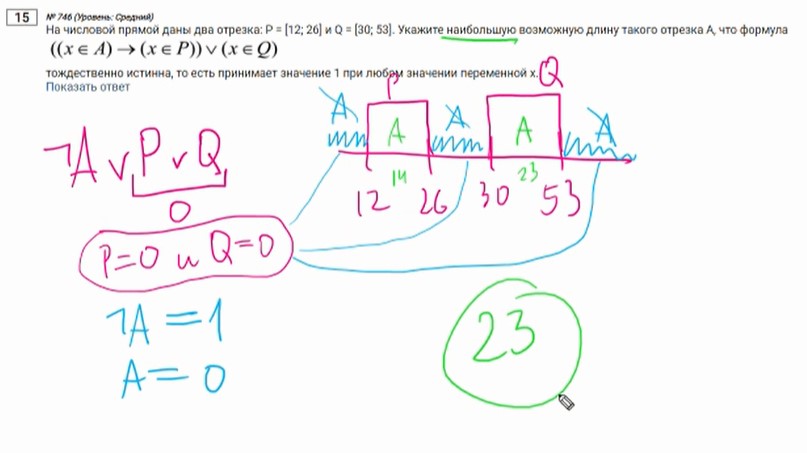 15 № 746 (Уровень: Средний)
На числовой прямой даны два отрезка: P = [12; 26] и Q = [30; 53]. Укажите наибольшую возможную длину такого отрезка A, что формула
((x ∈ A) → (x ∈ P)) ∨ (x ∈ Q)
тождественно истинна, то есть принимает значение 1 при любом значении переменной x.
Показать ответ
P Q
A A A A A
¬A ∨ P ∨ Q
14 23
0
12 26 30 53
P=0 и Q=0
¬A = 1
A = 0
23